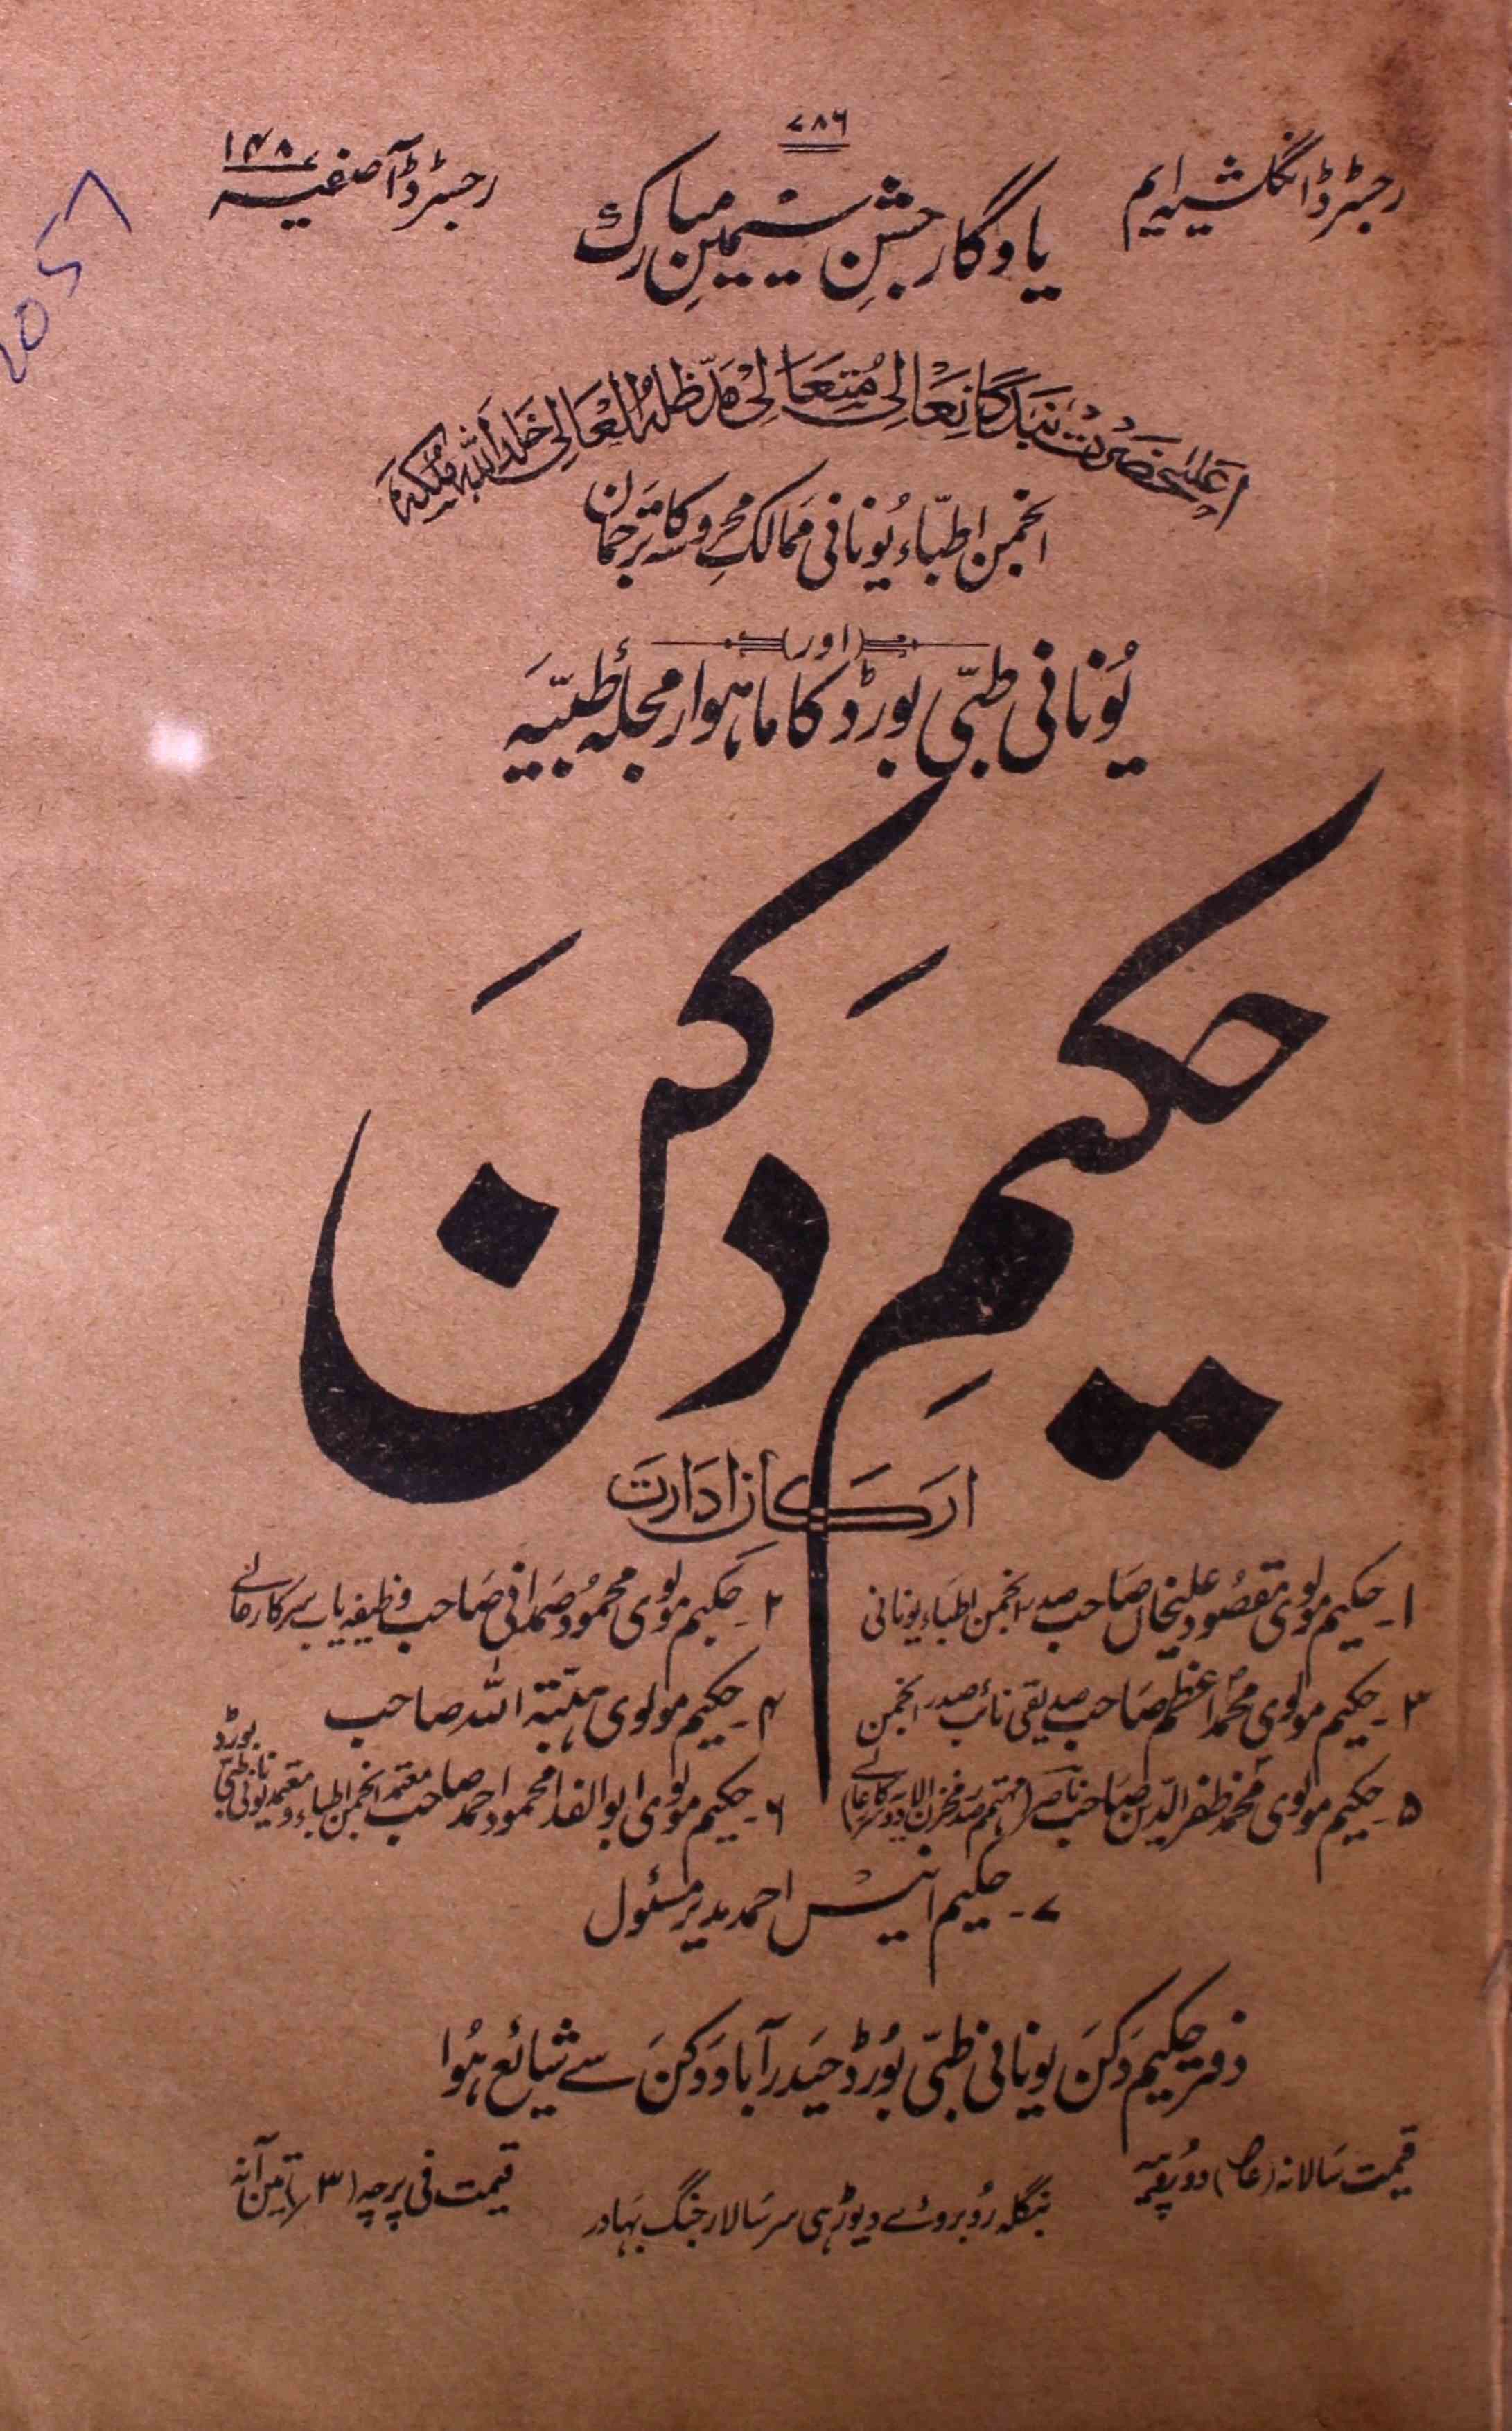 ۷۸۶
رجسٹرڈ انگلشیہ ایم
یادگار جشن سیمین مبارک
رجسٹرڈ آصفیہ ۱۴۸
اعلیٰحضرت بندگانعالی متعالی مدظلہ العالی خلد اللہ ملکہ
انجمن اطبّاء یُونانی ممالک محروسہ کا ترجمان
(اور)
یُونانی طبّی بورڈ کا ماہوار مجلہٴ طبّیہ
حکیمِ دَکَن
ارکان ادارت
۱۔ حکیم مولوی مقصود علیخاں صاحب صدر انجمن اطباء یونانی
۲۔ حکیم مولوی محمود صمدانی صاحب وظیفہ یاب سرکار عالی
۳۔ حکیم مولوی محمد اعظم صاحب صدیقی نائب صدر انجمن
۴۔ حکیم مولوی ہبتہ اللہ صاحب
۵۔ حکیم مولوی محمد ظفر الدین صاحب ناصر (مہتمم صدر مخزن الادویہ سرکار عالی)
۶۔ حکیم مولوی ابوالفدا محمود احمد صاحب معتمد انجمن اطباء و معتمد یونانی طبی بورڈ
۷۔ حکیم انیس احمد مدیر مسئول
دفتر حکیم دکن یونانی طبّی بورڈ حیدرآباد دکن سے شائع ہُوا
قیمت سالانہ (عا) دو روپیہ
بنگلہ رُوبروئے دیوڑھی سر سالار جنگ بہادر
قیمت فی پرچہ (۳؍) تین آنہ